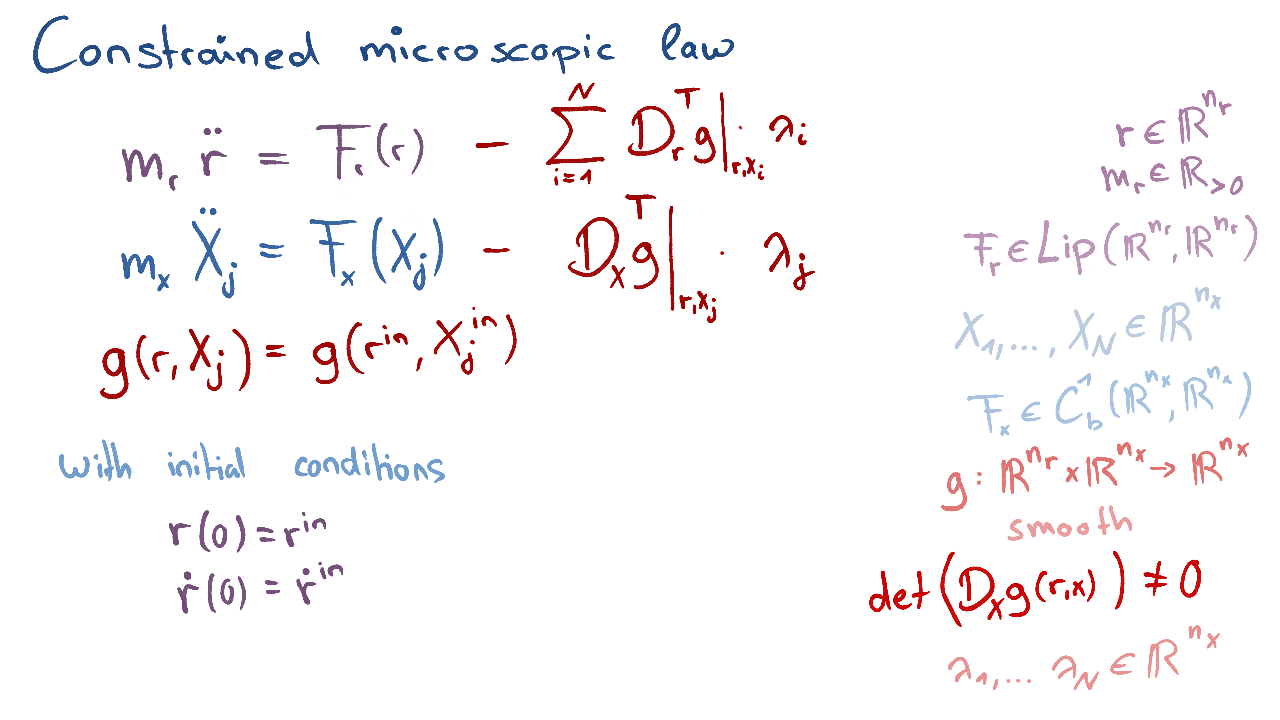 Constrained microscopic law
m_r r̈ = F_r(r) − ∑_{i=1}^{N} D_r^T g|_{r,X_i} · λ_i
m_x Ẍ_j = F_x(X_j) − D_x^T g|_{r,X_j} · λ_j
g(r, X_j) = g(r^{in}, X_j^{in})
with initial conditions
r(0) = r^{in}
ṙ(0) = ṙ^{in}
r ∈ ℝ^{n_r}
m_r ∈ ℝ_{>0}
F_r ∈ Lip(ℝ^{n_r}, ℝ^{n_r})
X_1, ..., X_N ∈ ℝ^{n_x}
F_x ∈ C_b^1(ℝ^{n_x}, ℝ^{n_x})
g : ℝ^{n_r} × ℝ^{n_x} → ℝ^{n_x}
smooth
det(D_x g(r,x)) ≠ 0
λ_1, ... λ_N ∈ ℝ^{n_x}